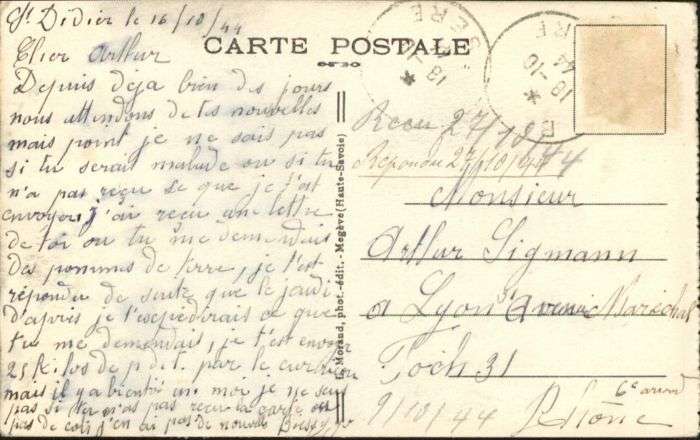 St Didier le 16/10/44
CARTE POSTALE
Cher Arthur
Depuis déja bien des jours
nous attendons de tes nouvelles
mais point je ne sais pas
si tu serait malade ou si tu
n'a pas reçu se que je t'est
envoyer, j'air reçu une lettre
de toi ou tu me demendais
des pommes de terre, je t'est
répondu de suite que le jeudi
d'apris je t'expédirais ce que
tu me demendais, je t'est envoyer
25 Kilos de p d t. par le
mais il y a bientôt un mois je ne sais
pas si tu n'as pas reçu la carte ou
pas de j'en ai pas de nouvelle
Morand, phot.-édit. - Megève (Haute-Savoie)
ISERE
18-10
44
ISERE
18-10
44
Recu 27/10/44
Repondu 27/10/44
Monsieur
Arthur Sigmann
a Lyon avenue Maréchal
Foch 31
6e arrond
9/10/44 Rhône